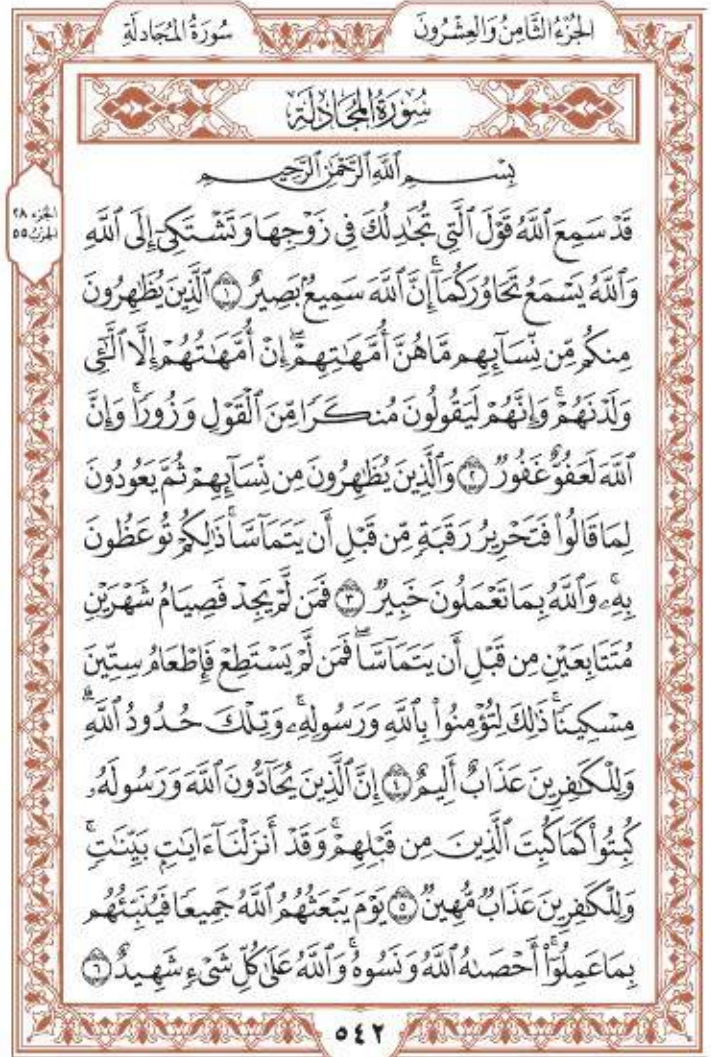 سُورَةُ المُجَادلَةِ
الجُزْءُ الثَّامِنُ وَالعِشْرُونَ
سُورَةُ المُجَادلَةِ
بِسْمِ ٱللَّهِ ٱلرَّحْمَٰنِ ٱلرَّحِيمِ
الجزء ٢٨
الحزب ٥٥
قَدْ سَمِعَ ٱللَّهُ قَوْلَ ٱلَّتِي تُجَٰدِلُكَ فِي زَوْجِهَا وَتَشْتَكِيٓ إِلَى ٱللَّهِ
وَٱللَّهُ يَسْمَعُ تَحَاوُرَكُمَآۚ إِنَّ ٱللَّهَ سَمِيعُۢ بَصِيرٌ ١ ٱلَّذِينَ يُظَٰهِرُونَ
مِنكُم مِّن نِّسَآئِهِم مَّا هُنَّ أُمَّهَٰتِهِمْۖ إِنْ أُمَّهَٰتُهُمْ إِلَّا ٱلَّٰٓـِٔي
وَلَدْنَهُمْۚ وَإِنَّهُمْ لَيَقُولُونَ مُنكَرًا مِّنَ ٱلْقَوْلِ وَزُورًاۚ وَإِنَّ
ٱللَّهَ لَعَفُوٌّ غَفُورٌ ٢ وَٱلَّذِينَ يُظَٰهِرُونَ مِن نِّسَآئِهِمْ ثُمَّ يَعُودُونَ
لِمَا قَالُوا۟ فَتَحْرِيرُ رَقَبَةٍ مِّن قَبْلِ أَن يَتَمَآسَّاۚ ذَٰلِكُمْ تُوعَظُونَ
بِهِۦۚ وَٱللَّهُ بِمَا تَعْمَلُونَ خَبِيرٌ ٣ فَمَن لَّمْ يَجِدْ فَصِيَامُ شَهْرَيْنِ
مُتَتَابِعَيْنِ مِن قَبْلِ أَن يَتَمَآسَّاۖ فَمَن لَّمْ يَسْتَطِعْ فَإِطْعَامُ سِتِّينَ
مِسْكِينًاۚ ذَٰلِكَ لِتُؤْمِنُوا۟ بِٱللَّهِ وَرَسُولِهِۦۚ وَتِلْكَ حُدُودُ ٱللَّهِۗ
وَلِلْكَٰفِرِينَ عَذَابٌ أَلِيمٌ ٤ إِنَّ ٱلَّذِينَ يُحَآدُّونَ ٱللَّهَ وَرَسُولَهُۥ
كُبِتُوا۟ كَمَا كُبِتَ ٱلَّذِينَ مِن قَبْلِهِمْۚ وَقَدْ أَنزَلْنَآ ءَايَٰتٍۭ بَيِّنَٰتٍۚ
وَلِلْكَٰفِرِينَ عَذَابٌ مُّهِينٌ ٥ يَوْمَ يَبْعَثُهُمُ ٱللَّهُ جَمِيعًا فَيُنَبِّئُهُم
بِمَا عَمِلُوٓا۟ۚ أَحْصَىٰهُ ٱللَّهُ وَنَسُوهُۚ وَٱللَّهُ عَلَىٰ كُلِّ شَيْءٍ شَهِيدٌ ٦
٥٤٢